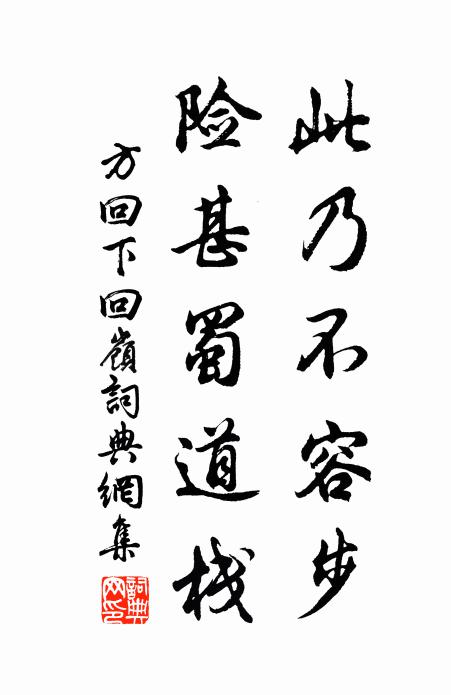 此乃不容步
险甚蜀道栈
方回下回嶺詞典網集
詞典网印